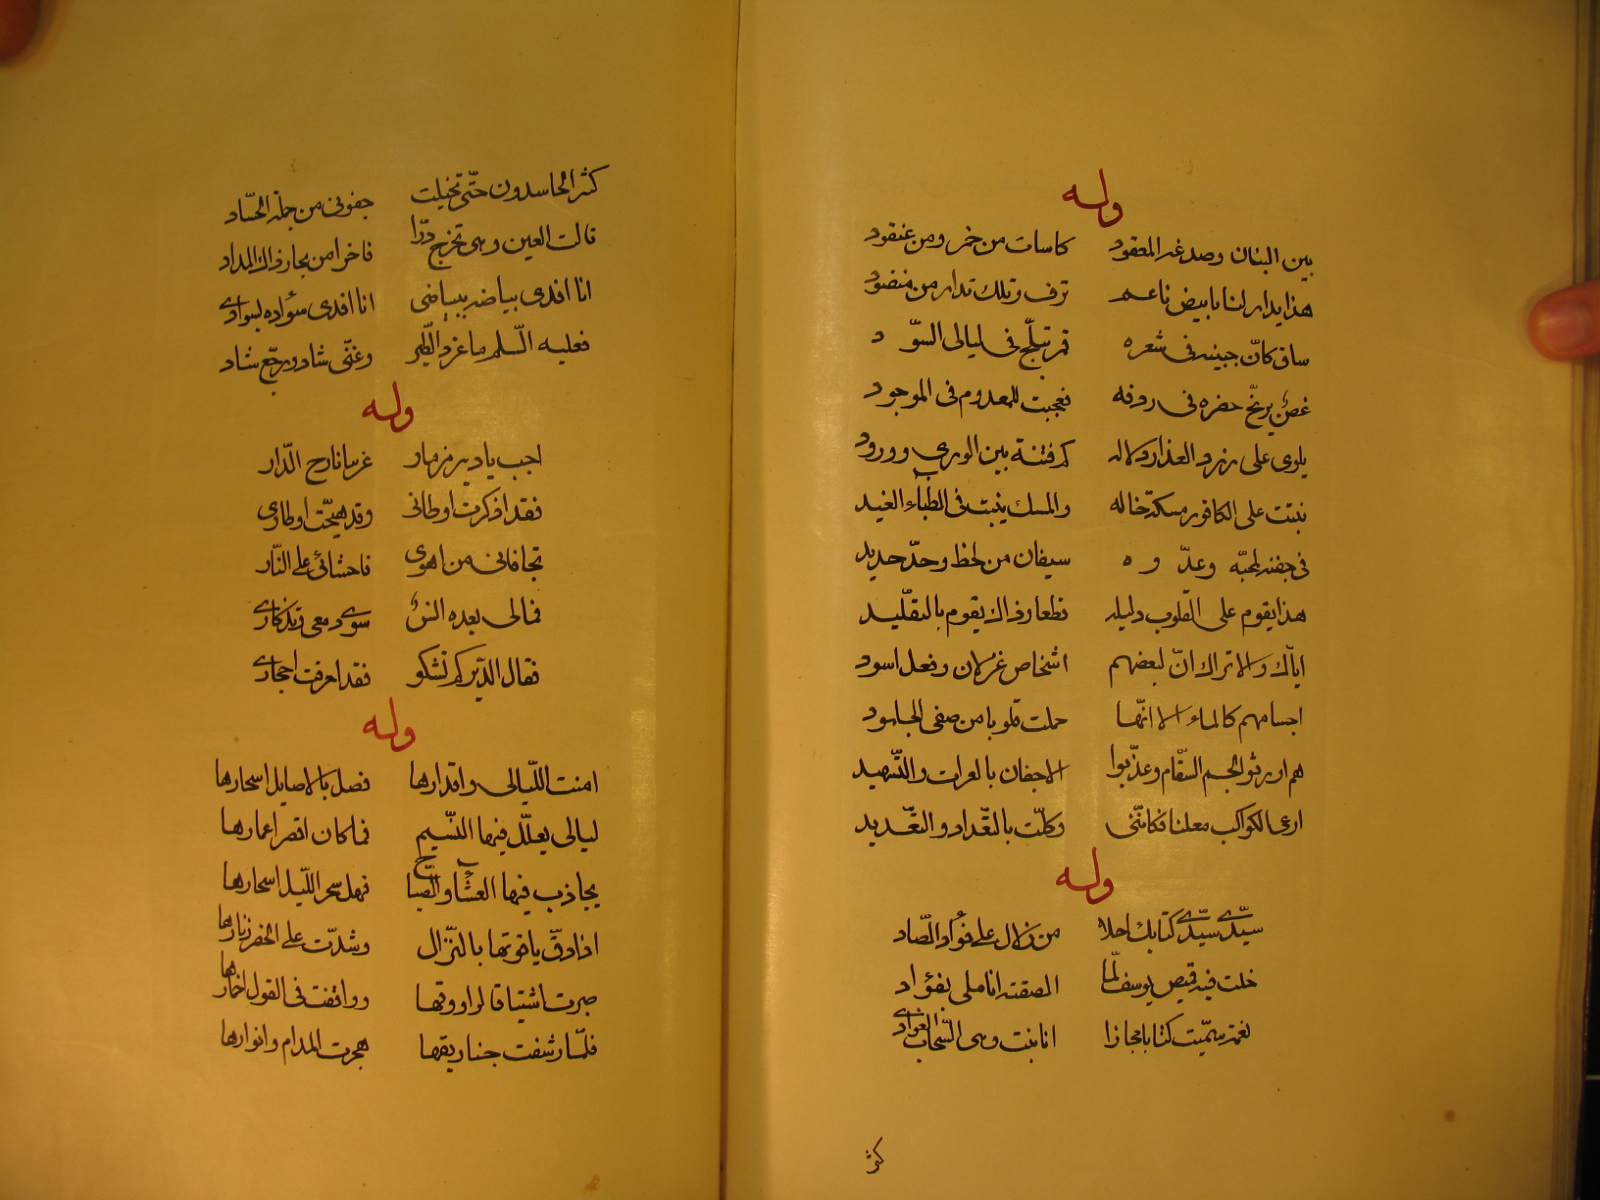 وله
بين البنان وصدغه المعقود كاسات من خمر ومن عنقود
هذا يدار لنا بابيض ناعم ترف وتلك تدار من منضود
ساق كانّ جبينه فى شعره قمر تبلّج فى ليالى السّود
غصن يرنّح خصره فى ردفه فعجبت للمعدوم فى الموجود
يلوى على زرد العذار دلاله كم فتنة بين الورى وورود
نبتت على الكافور مسكة خاله والمسك ينبت فى الظباء الغيد
فى جفنه لمحبّه وعدّوه سيفان من لحظ وحدّ حديد
هذا يقوم على القلوب دليله قطعا وذاك يقوم بالتقليد
ايّاك والاتراك انّ لبعضهم اشخاص غزلان وفعل اسود
اجسامهم كالماء الا انّها حملت قلوبا من صفى الجلمود
هم اورثو الجسم السّقام وعذّبوا الاجفان بالعبرات والتّسهيد
ارعى الكواكب معلنا فكانّنى وكلّت بالتّعداد والتّعديد
وله
سيّدى سيّدى كتابك احلا من زلال على فؤاد الصّاد
خلت فيه قميص يوسف لمّا الصقته اناملى بفؤاد
نعمة سمّيت كتابا مجازا انا نبت وهى السّحاب الغوادى
كثر
كثر الحاسدون حتّى تخيلت جفونى من جملة الحسّاد
قالت العين وهى تخرج درّا فاخرا من بحار ذاك المداد
انا افدى بياضه ببياضى انا افدى سواده بسوادى
فعليه السّلم ما غرد الطّير وغنّى شاد ورجّع شاد
وله
اجب يا دير مزمار غريبا نازح الدّار
فقد اذكرت اوطانى وقد هيّجت اوطارى
تجافانى من اهوى فاحشائى على النّار
فمالى بعده انس سوى دمعى وتذكارى
فقال الدّير كم تشكو فقد احرقت احجارى
وله
امنت اللّيالى واقدارها فصل بالاصايل اسحارها
ليالى يعلّل فيها النّسيم فما كان اقصر اعمارها
يجاذب فيها العشاء الصّباح فهل سحر اللّيل اسحارها
اذا دقّ ياقوتها بالنّزال وشدّت على الخصر زنارها
صرت اشتياقا لراووقها وواتفت فى القول خمّارها
فلمّا رشفت جنا ريقها هجرت المدام وانوارها